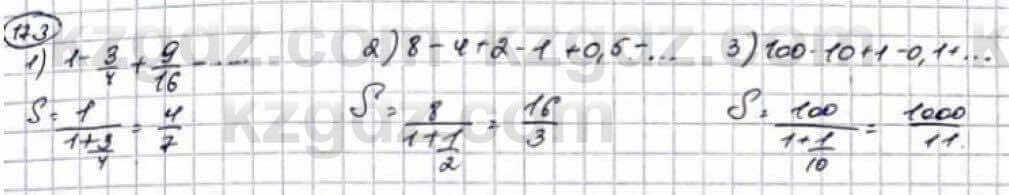 17.3
1) 1 - 3/4 + 9/16 - ....
2) 8 - 4 + 2 - 1 + 0,5 - ...
3) 100 - 10 + 1 - 0,1 + ...
S = 1/(1 + 3/4) = 4/7
S = 8/(1 + 1/2) = 16/3
S = 100/(1 + 1/10) = 1000/11.
kzgdz.com
kzgdz.com
kzgdz.com